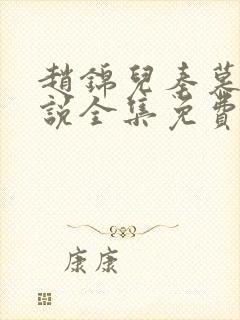 趙錦兒秦慕
說全集免費
康康